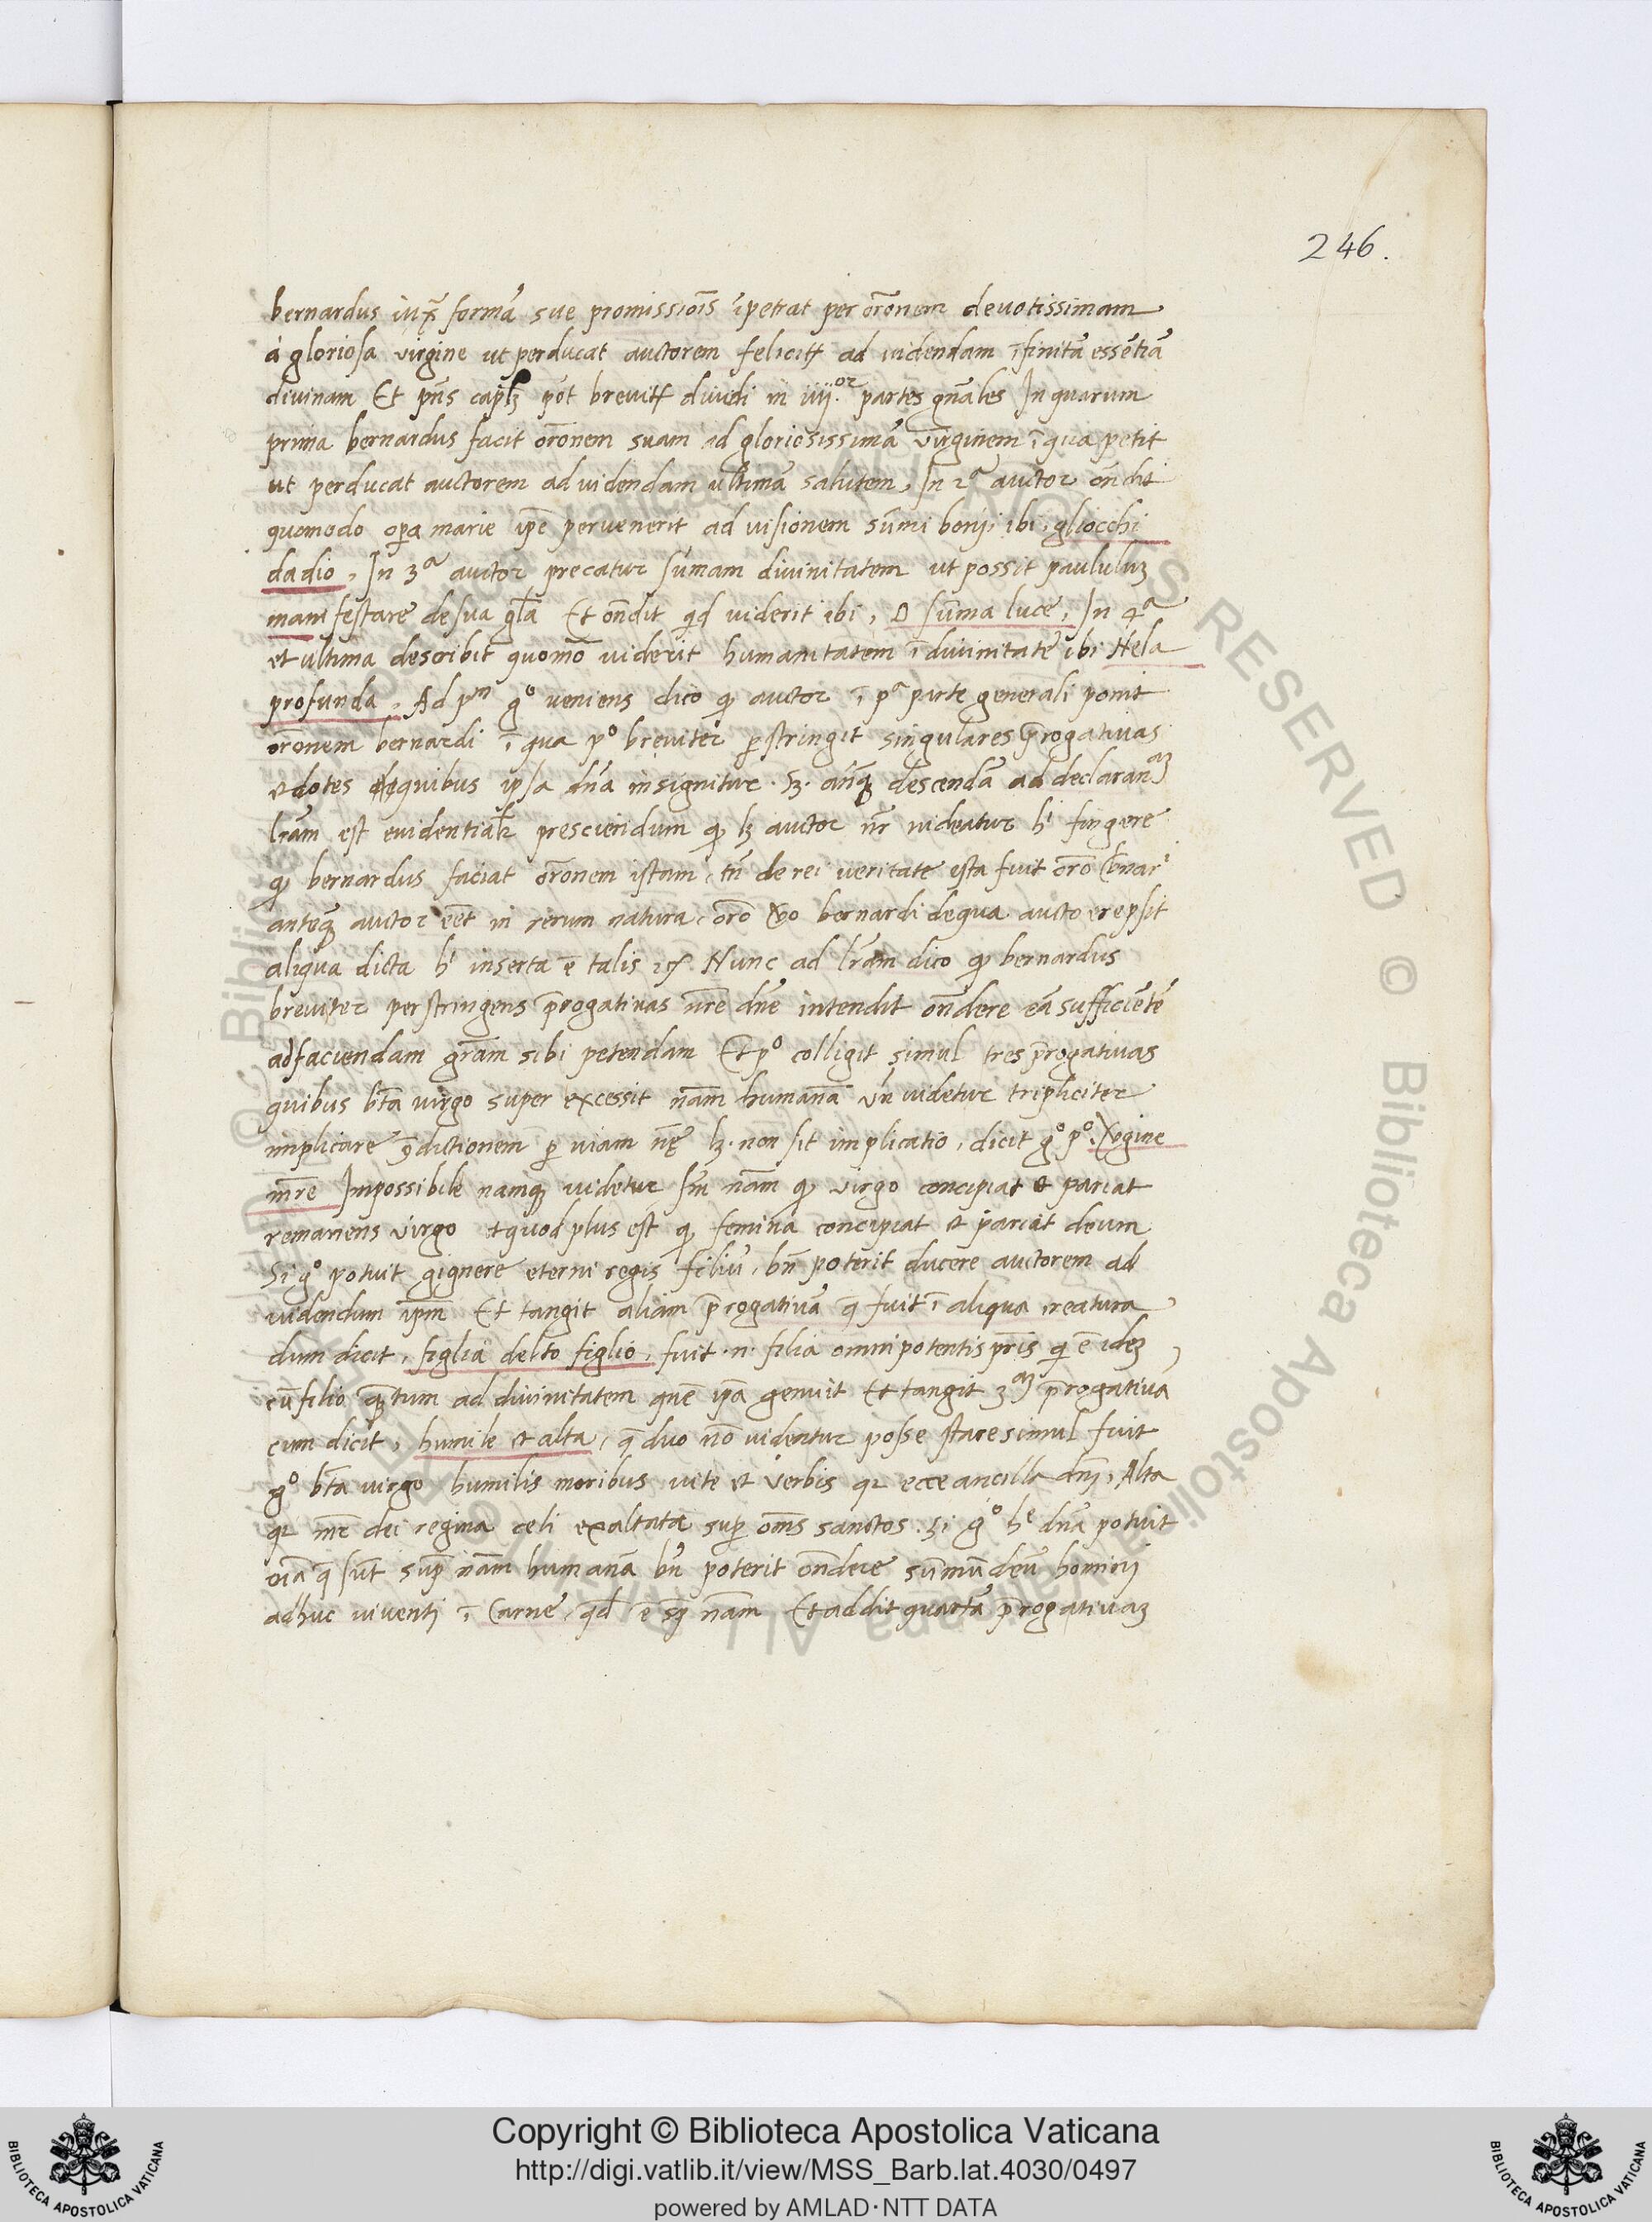 246.
bernardus iux̃ formã sue promissiõis ĩpetrat per orõnem devotissimam
à gloriosa virgine ut perducat auctorem feliciṫ ad videndam ĩfinitã essẽtiã
divinam Et pñs caplꝫ põt breviṫ dividi in iiij.or partes gñales In quarum
prima bernardus facit orõnem suam ad gloriosissimã virginem ĩ qua petit
ut perducat auctorem ad videndam ultimã salutem, In 2ª auctor oñdit
quomodo oꝑa marie ip̃e pervenerit ad visionem sũmi bonij ibi, gliocchi
dadio, In 3ª auctor precatur sũmam divinitatem ut possit paululuꝫ
manifestare de sua gl̃a Et oñdit qd viderit ibi, O sũma luce, In 4ª
et ultima describit quomõ viderit humanitatem ĩ divinitatẽ ibi Nela
profunda, Ad pm gº veniens dico ꝙ auctor ĩ pª parte generali ponit
orõnem bernardi ĩ qua pº breviter ꝑstringit singulares p̃rogativas
et dotes de quibus ipsa dña insignitur. Sꝫ. anꝙ̃ descendã ad declaranᵃᵐ
lr̃am est presciendum ꝙ lꝫ auctor nr̃ videatur hⁱ fingere
ꝙ bernardus faciat orõnem istam, tñ de rei veritate esta fuit orõ bernarⁱ
anteꝙ̃ auctor eẽt in rerum natura, orõ v̊o bernardi de qua
aliqua dicta hⁱ inserta ẽ talis ꝛc̃. Nunc ad lr̃am dico ꝙ bernardus
breviter perstringens p̃rogativas nr̃e dñe intendit oñdere eã sufficiẽtẽ
ad faciendam gr̃am sibi petendam Et pº colligit simul tres p̃rogativas
quibus bt̃a virgo super excessit nãm humanã vñ videtur tripliciter
implicare ꝯ̃dictionem ꝑ viam nẽ lꝫ. non sit implicatio, dicit gº pº. Vegine
mr̃e Impossibile namꝙ videtur sm̃ nãm ꝙ virgo concipiat et pariat
remanens virgo et quod plus est ꝙ femina concipiat et pariat deum
Si gº potuit gignere eterni regis filiũ, bñ poterit ducere auctorem ad
videndum ip̃m Et tangit aliam p̃rogativã q̃ fuit ĩ aliqua creatura
dum dicit, figlia delto figlio, fuit .n. filia omnipotentis pr̃is ꝙ ẽ ideꝫ
cũ filio ꝙ̃tum ad divinitatem quẽ ip̃a genuit Et tangit 3ᵃᵐ p̃rogativã
cum dicit, humile et alta, q̃ duo nõ videntur posse stare simul fuit
gº bt̃a virgo humilis moribus vite et verbis qꝛ ecce ancilla dñj, Alta
qꝛ mr̃ dei regina celi exaltata suꝑ om̃s sanctos. Si gº hᵉ dña potuit
oĩa q̃ sũt supᵃ nãm humanã bñ poterit oñdere sũmũ deũ hominj
adhuc viventj ĩ Carne, qd̃ ẽ sꝫ nãm Et addit quartã p̃rogativaꝫ
Copyright © Biblioteca Apostolica Vaticana
http://digi.vatlib.it/view/MSS_Barb.lat.4030/0497
powered by AMLAD·NTT DATA